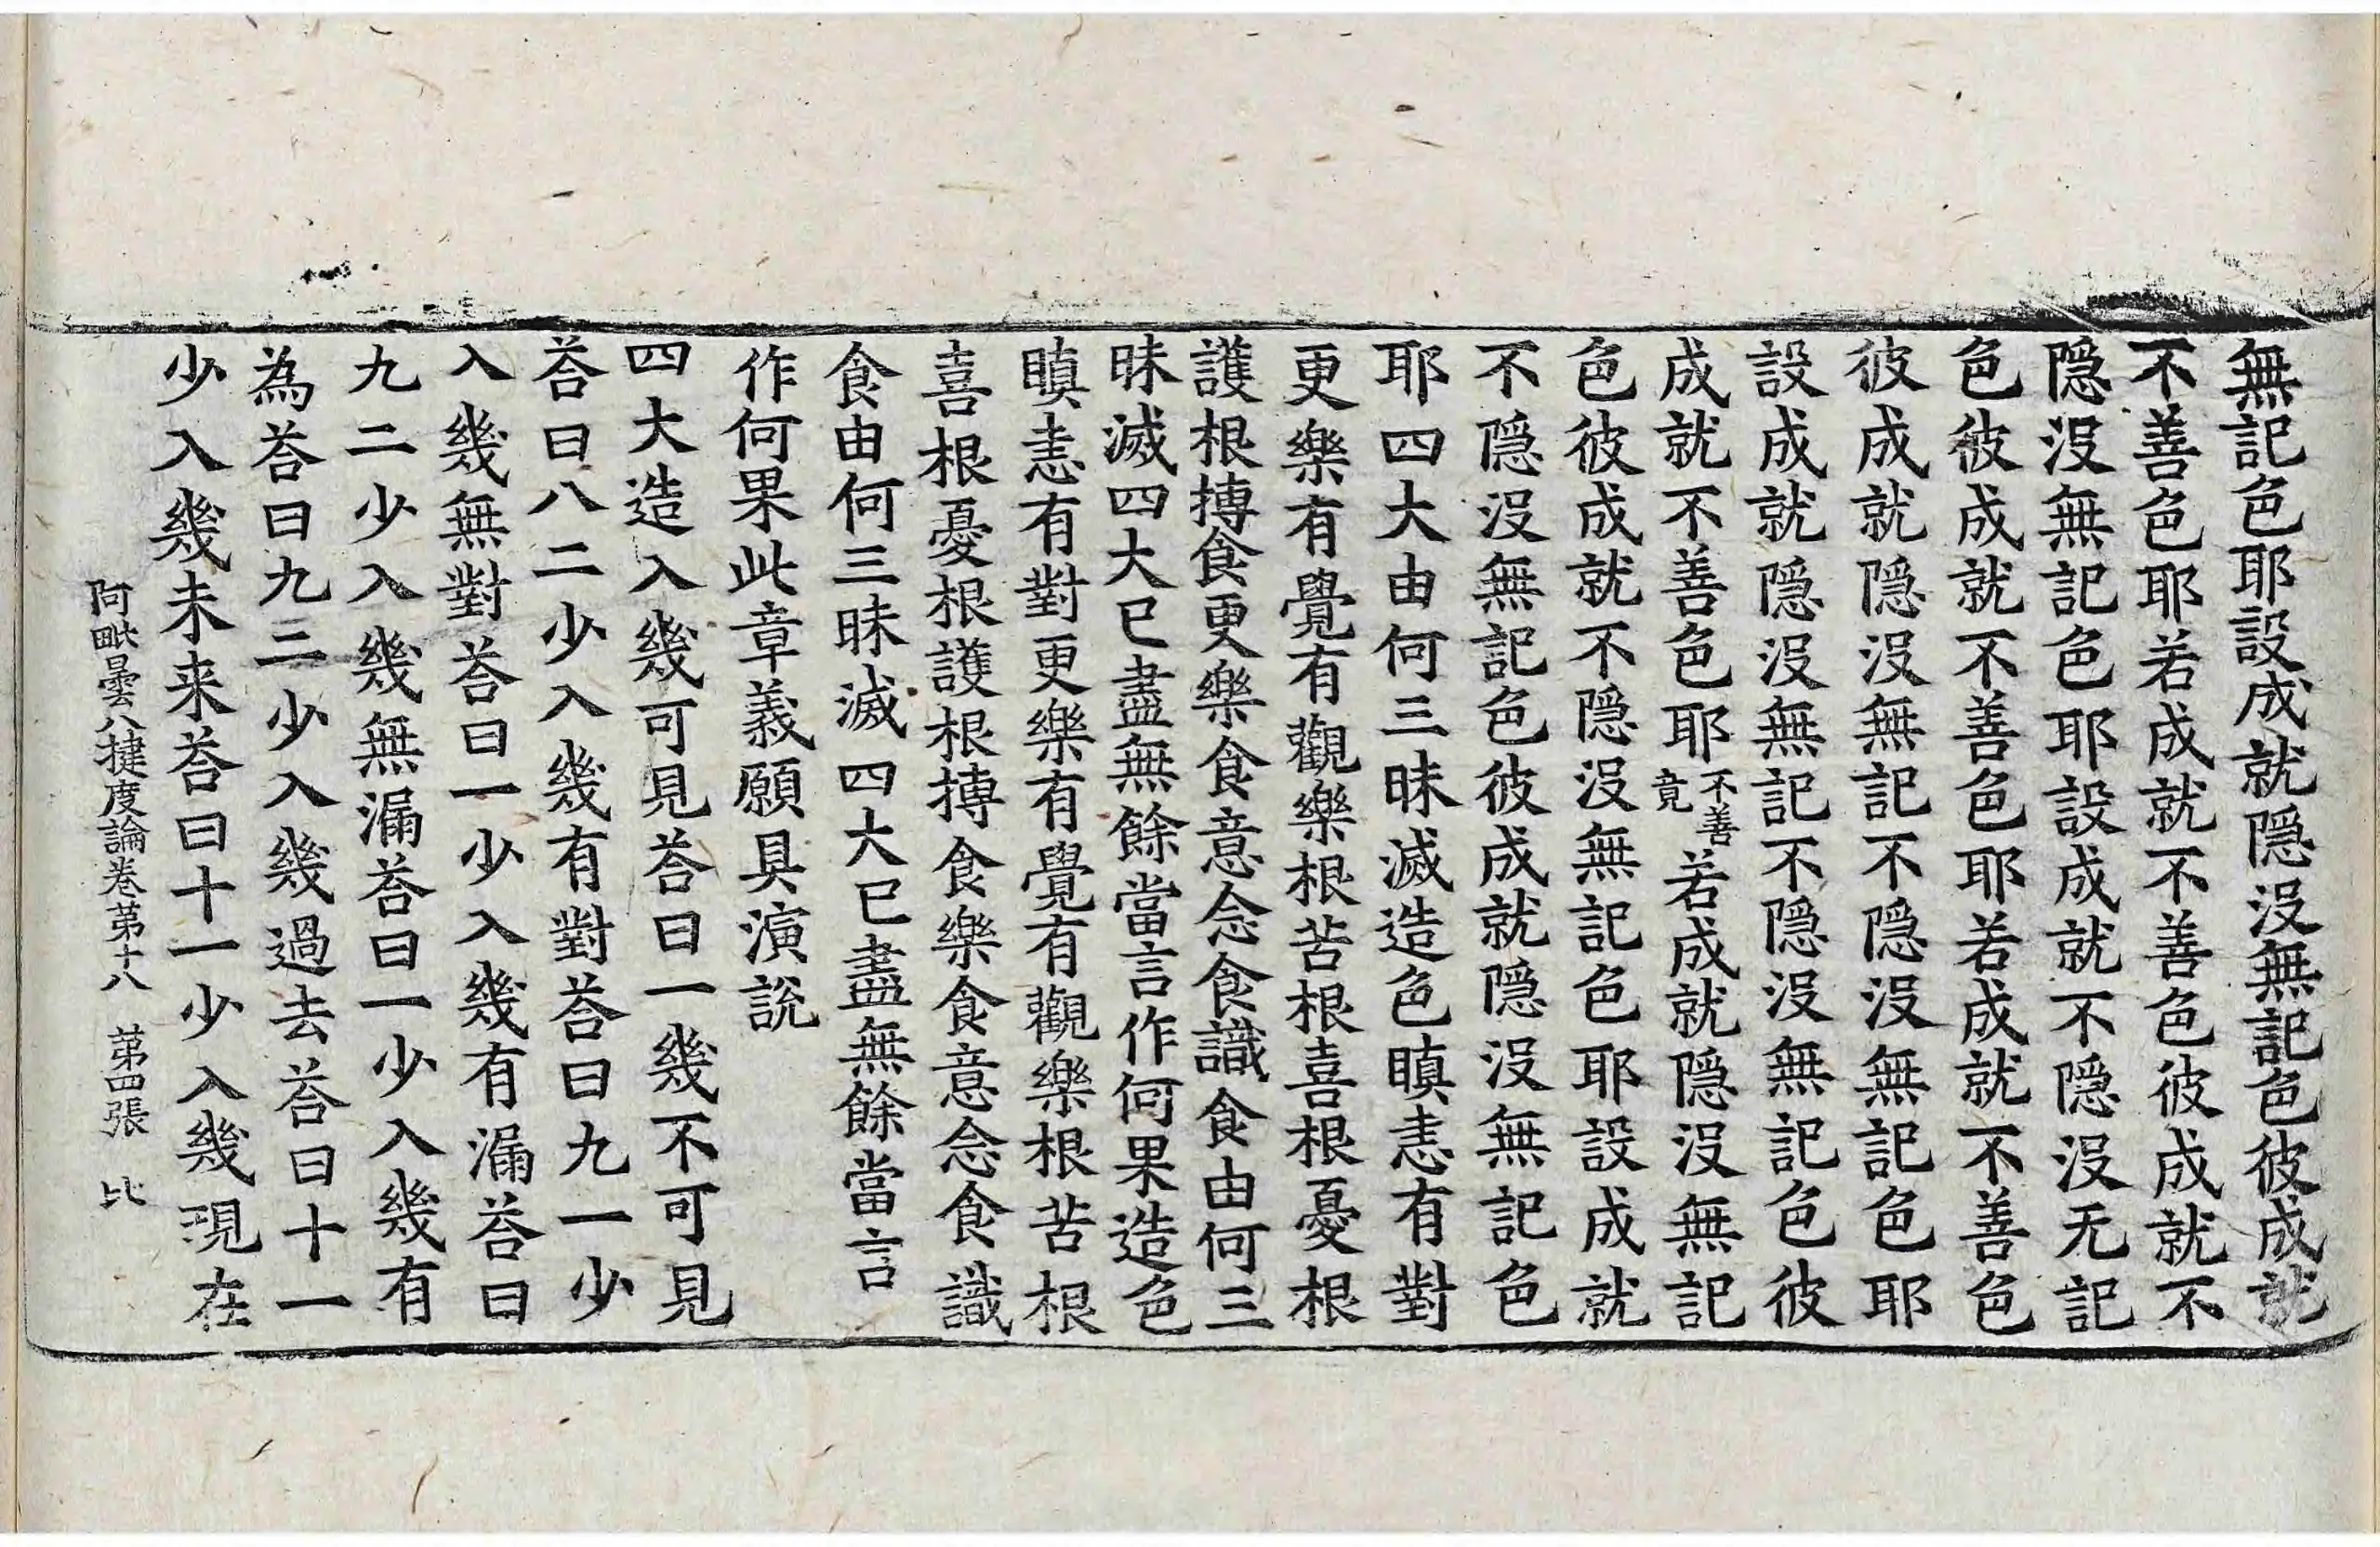 無記色耶設成就隱没無記色彼成就
不善色耶若成就不善色彼成就不
隱没無記色耶設成就不隱没无記
色彼成就不善色耶若成就不善色
彼成就隱没無記不隱没無記色耶
設成就隱没無記不隱没無記色彼
成就不善色耶不善竟若成就隱没無記
色彼成就不隱没無記色耶設成就
不隱没無記色彼成就隱没無記色
耶四大由何三昧滅造色瞋恚有對
更樂有覺有觀樂根苦根喜根憂根
護根摶食更樂食意念食識食由何三
昧滅四大已盡無餘當言作何果造色
瞋恚有對更樂有覺有觀樂根苦根
喜根憂根護根摶食樂食意念食識
食由何三昧滅四大已盡無餘當言
作何果此章義願具演説
四大造入幾可見荅曰一幾不可見
荅曰八二少入幾有對荅曰九一少
入幾無對荅曰一少入幾有漏荅曰
九二少入幾無漏荅曰一少入幾有
為荅曰九二少入幾過去荅曰十一
少入幾未来荅曰十一少入幾現在
阿毗曇八揵度論卷苐十八 苐四張 比